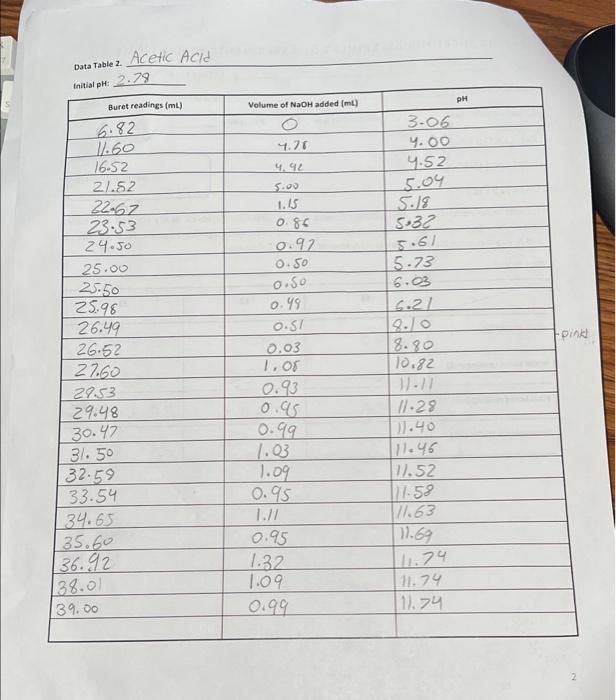 Data Table 2. Acetic Acid
Initial pH: 2.78
Buret readings (mL) Volume of NaOH added (mL) pH
6.82 0 3.06
11.60 4.78 4.00
16.52 4.92 4.52
21.52 5.00 5.04
22.67 1.15 5.18
23.53 0.86 5.32
24.50 0.97 5.61
25.00 0.50 5.73
25.50 0.50 6.03
25.98 0.48 6.21
26.49 0.51 8.10
26.52 0.03 8.80 - pink
27.60 1.08 10.82
28.53 0.93 11.11
29.48 0.95 11.28
30.47 0.99 11.40
31.50 1.03 11.46
32.59 1.09 11.52
33.54 0.95 11.58
34.65 1.11 11.63
35.60 0.95 11.69
36.92 1.32 11.74
38.01 1.09 11.74
39.00 0.99 11.74
2